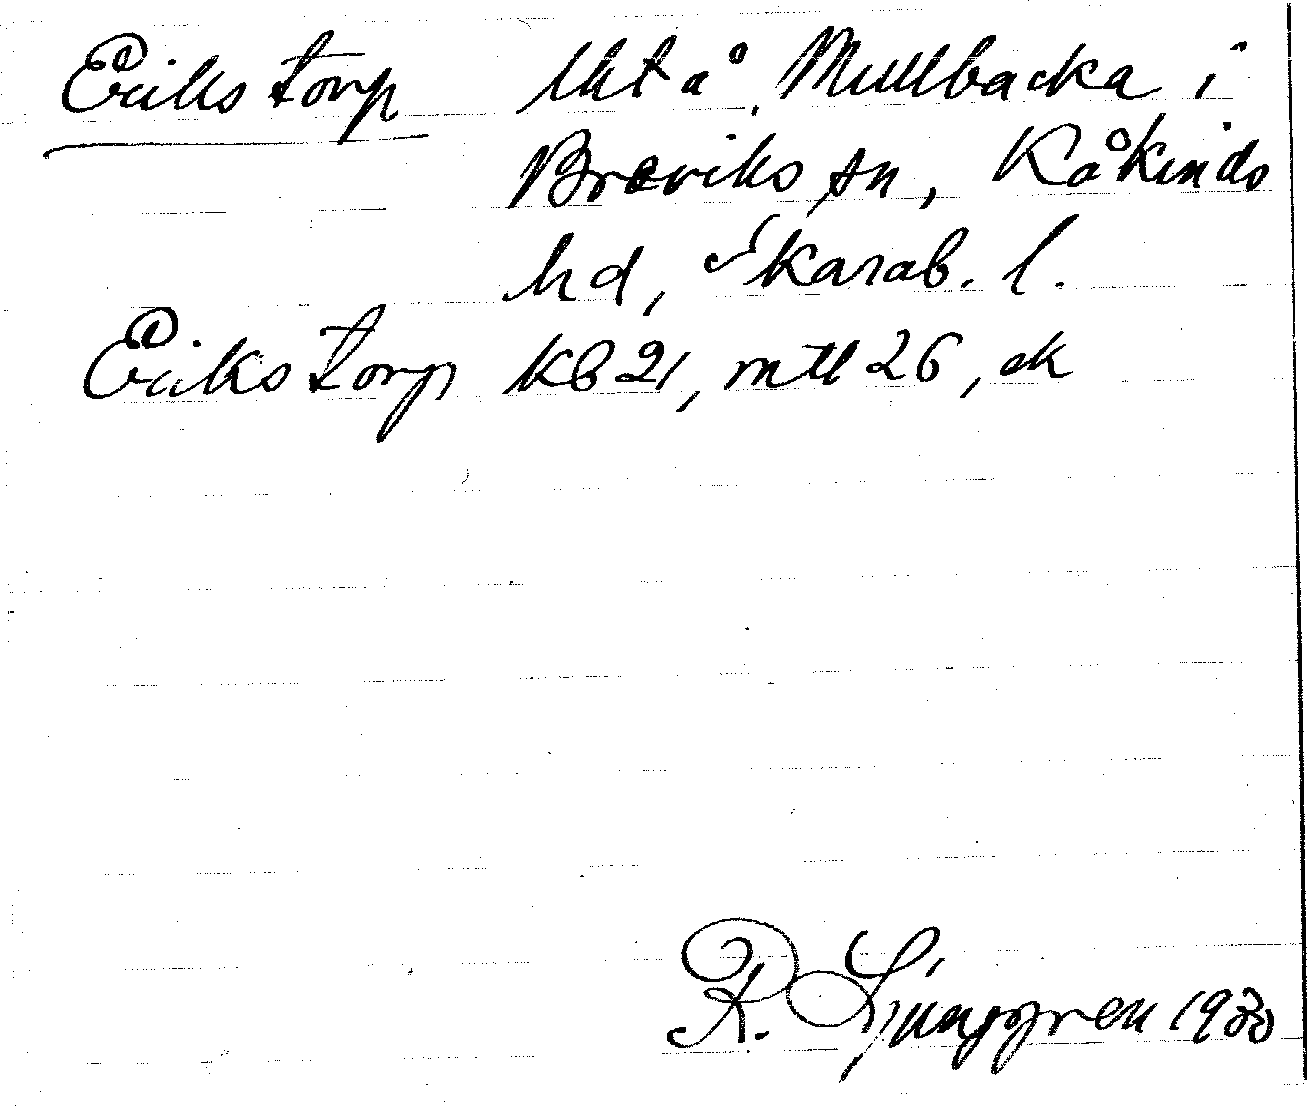 Erikstorp lht å Mullbacka i
Breviks sn, Kåkinds
hd, Skarab. l.
Erikstorp KB 21, mtl 26, ek
R. Ljunggren 1930